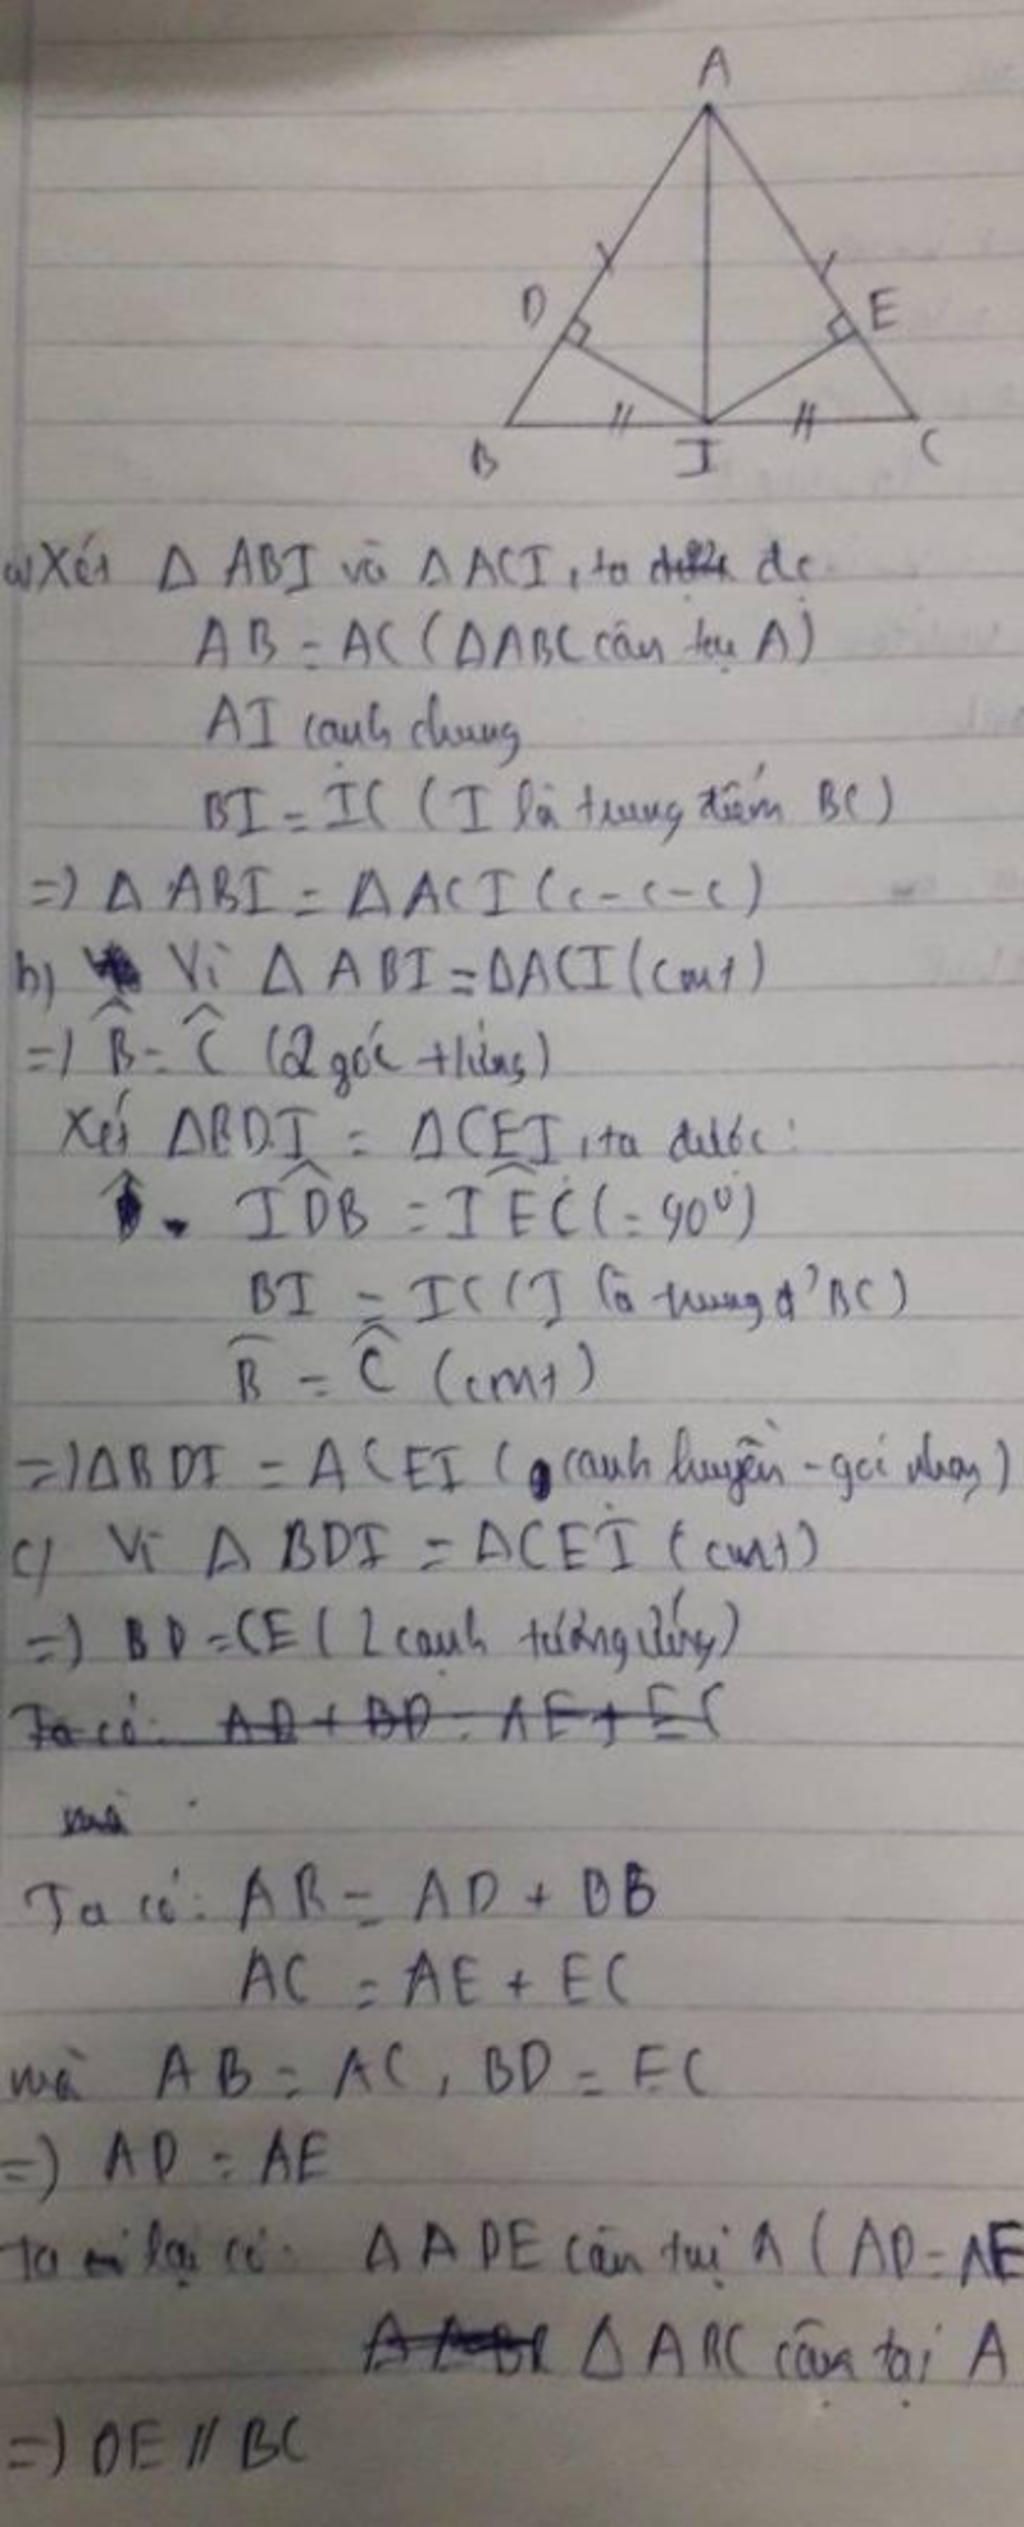 A
D
E
B
I
C
a) Xét Δ ABI và Δ ACI, ta đc
AB = AC (ΔABC cân tại A)
AI cạnh chung
BI = IC (I là trung điểm BC)
=) Δ ABI = ΔACI (c-c-c)
b) Vì Δ ABI = ΔACI (cmt)
=) B̂ = Ĉ (2 góc tứng)
Xét ΔBDI = ΔCEI, ta được:
IDB = IEC (= 90⁰)
BI = IC (I là trung đ' BC)
B̂ = Ĉ (cmt)
=) ΔBDI = ΔCEI (cạnh huyền - góc nhọn)
c) Vì Δ BDI = ΔCEI (cmt)
=) BD = CE (2 cạnh tương ứng)
Ta có: AD + BD = AE + EC
mà
Ta có: AB = AD + DB
AC = AE + EC
mà AB = AC, BD = EC
=) AD = AE
Ta lại có: Δ ADE cân tại A (AD = AE
Δ ABC cân tại A
=) DE // BC